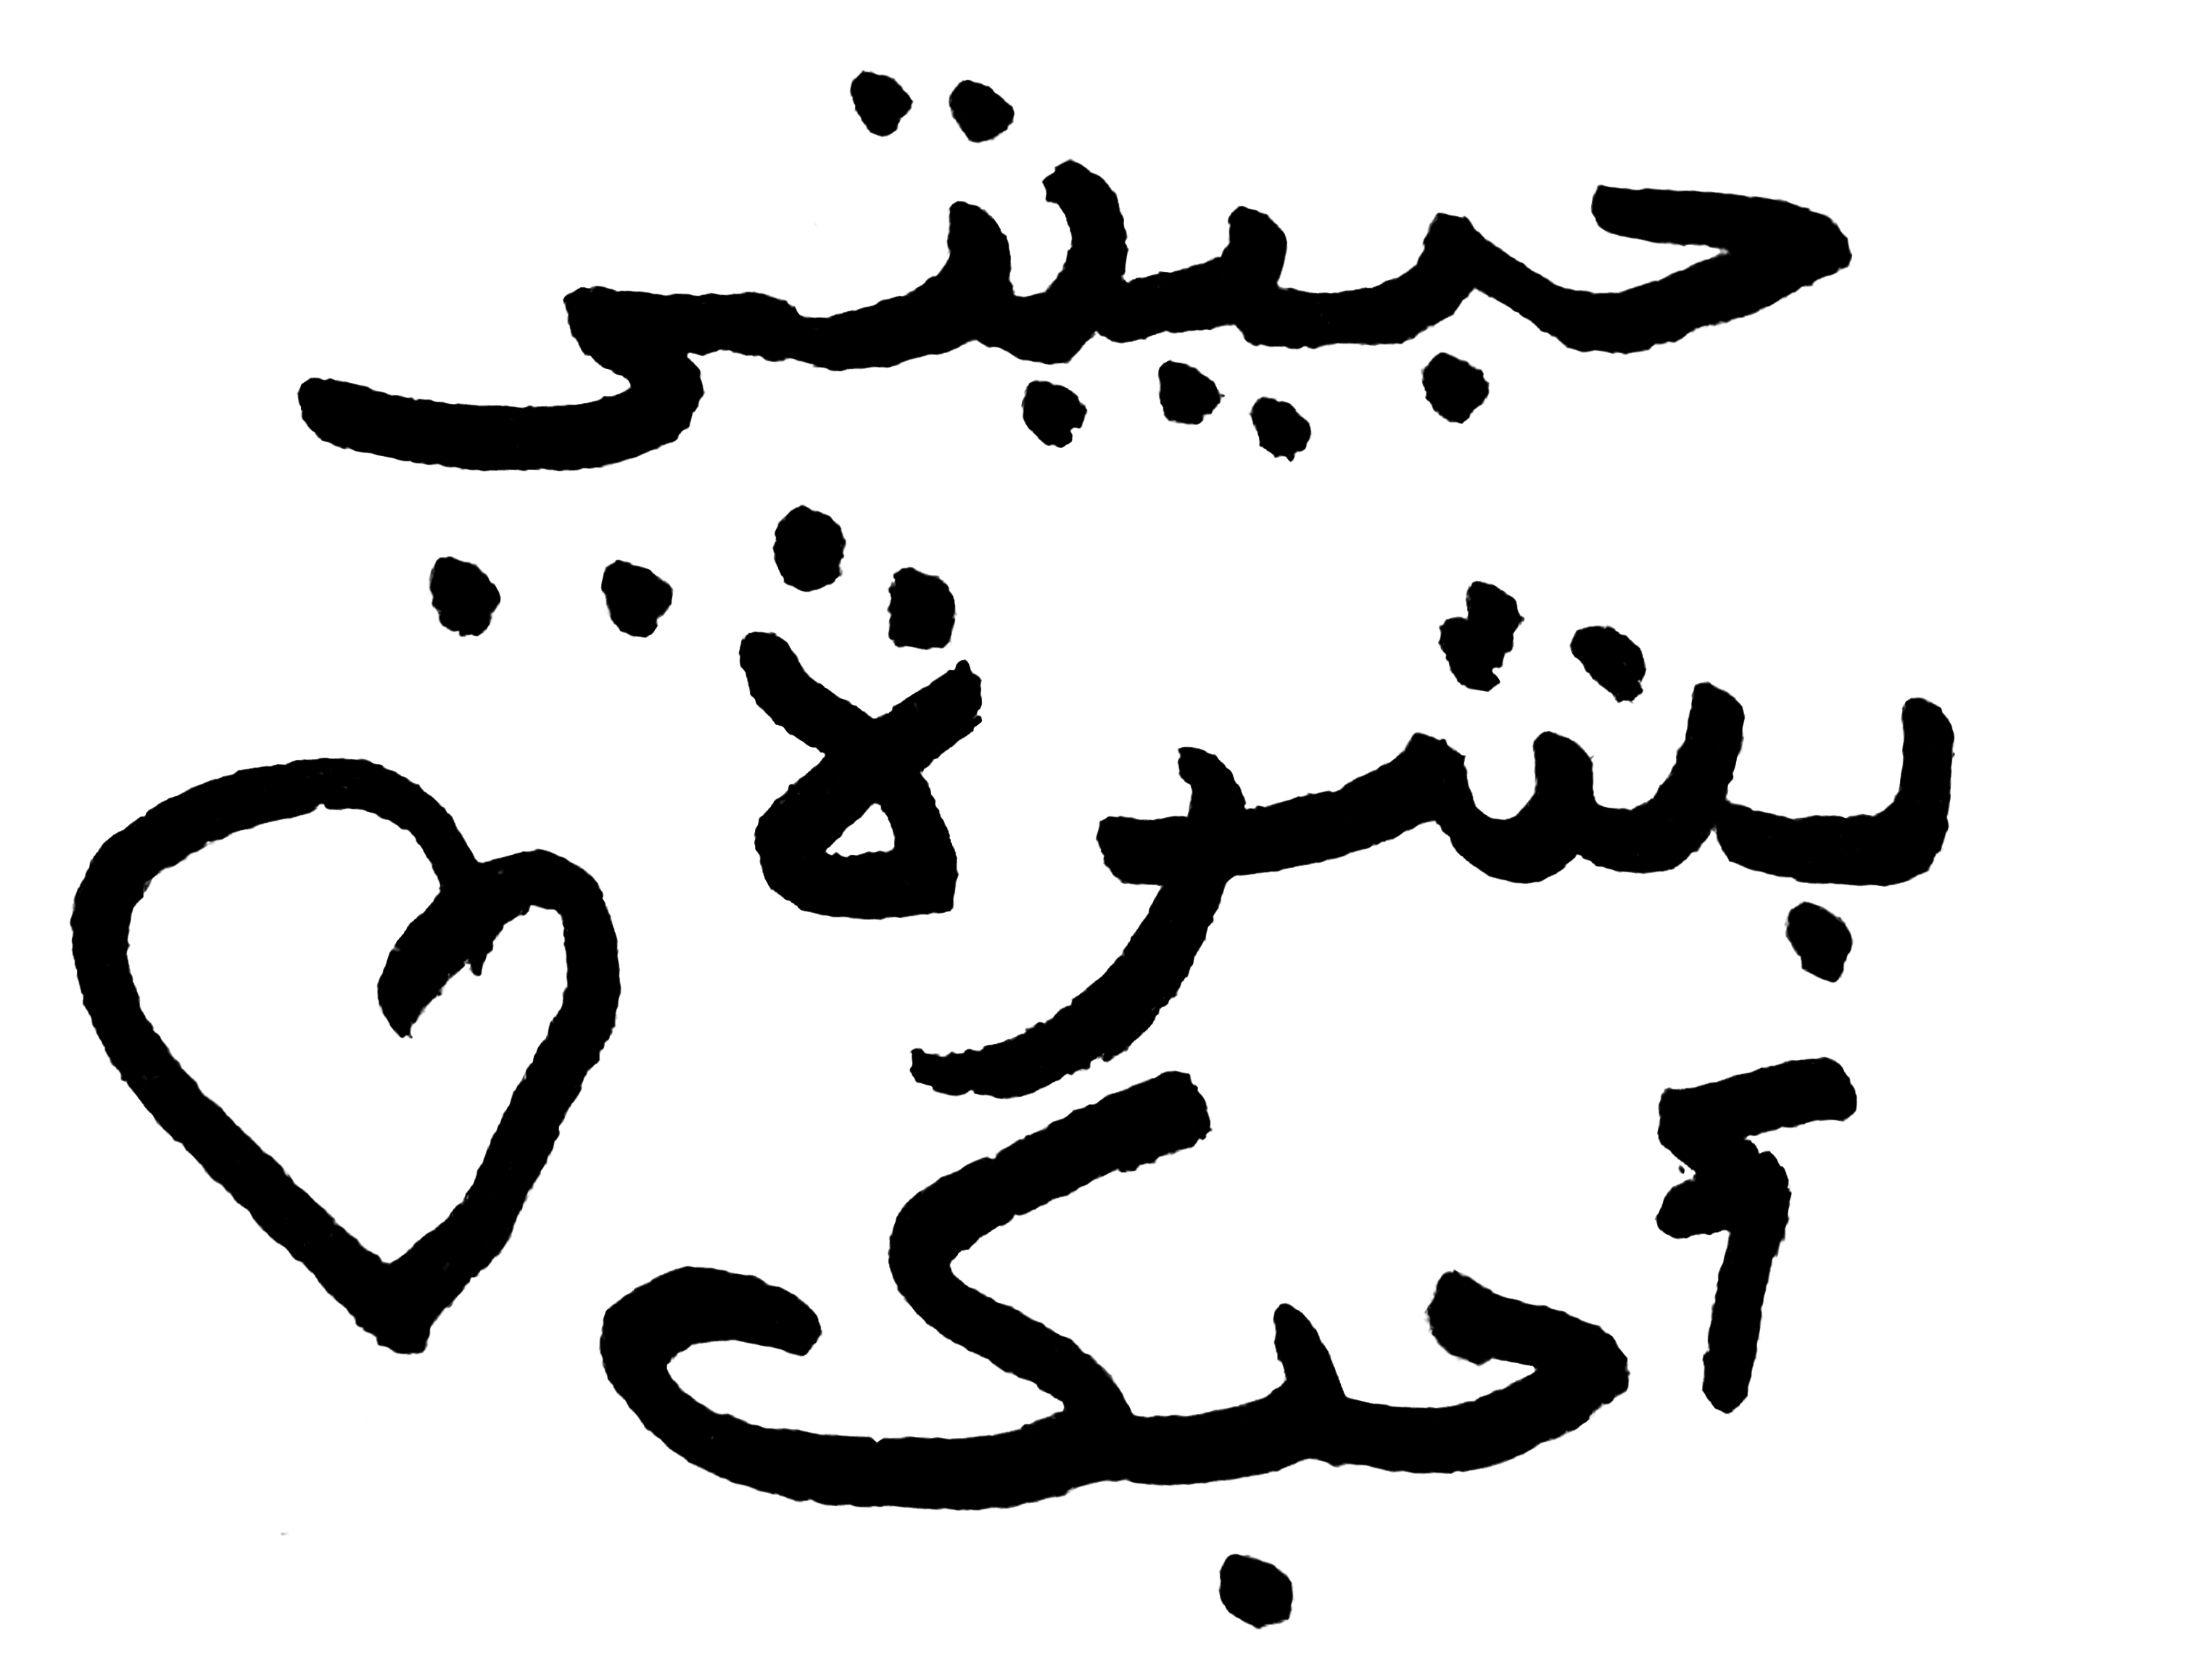 حبيبتي
بتسمة ..
أحبك